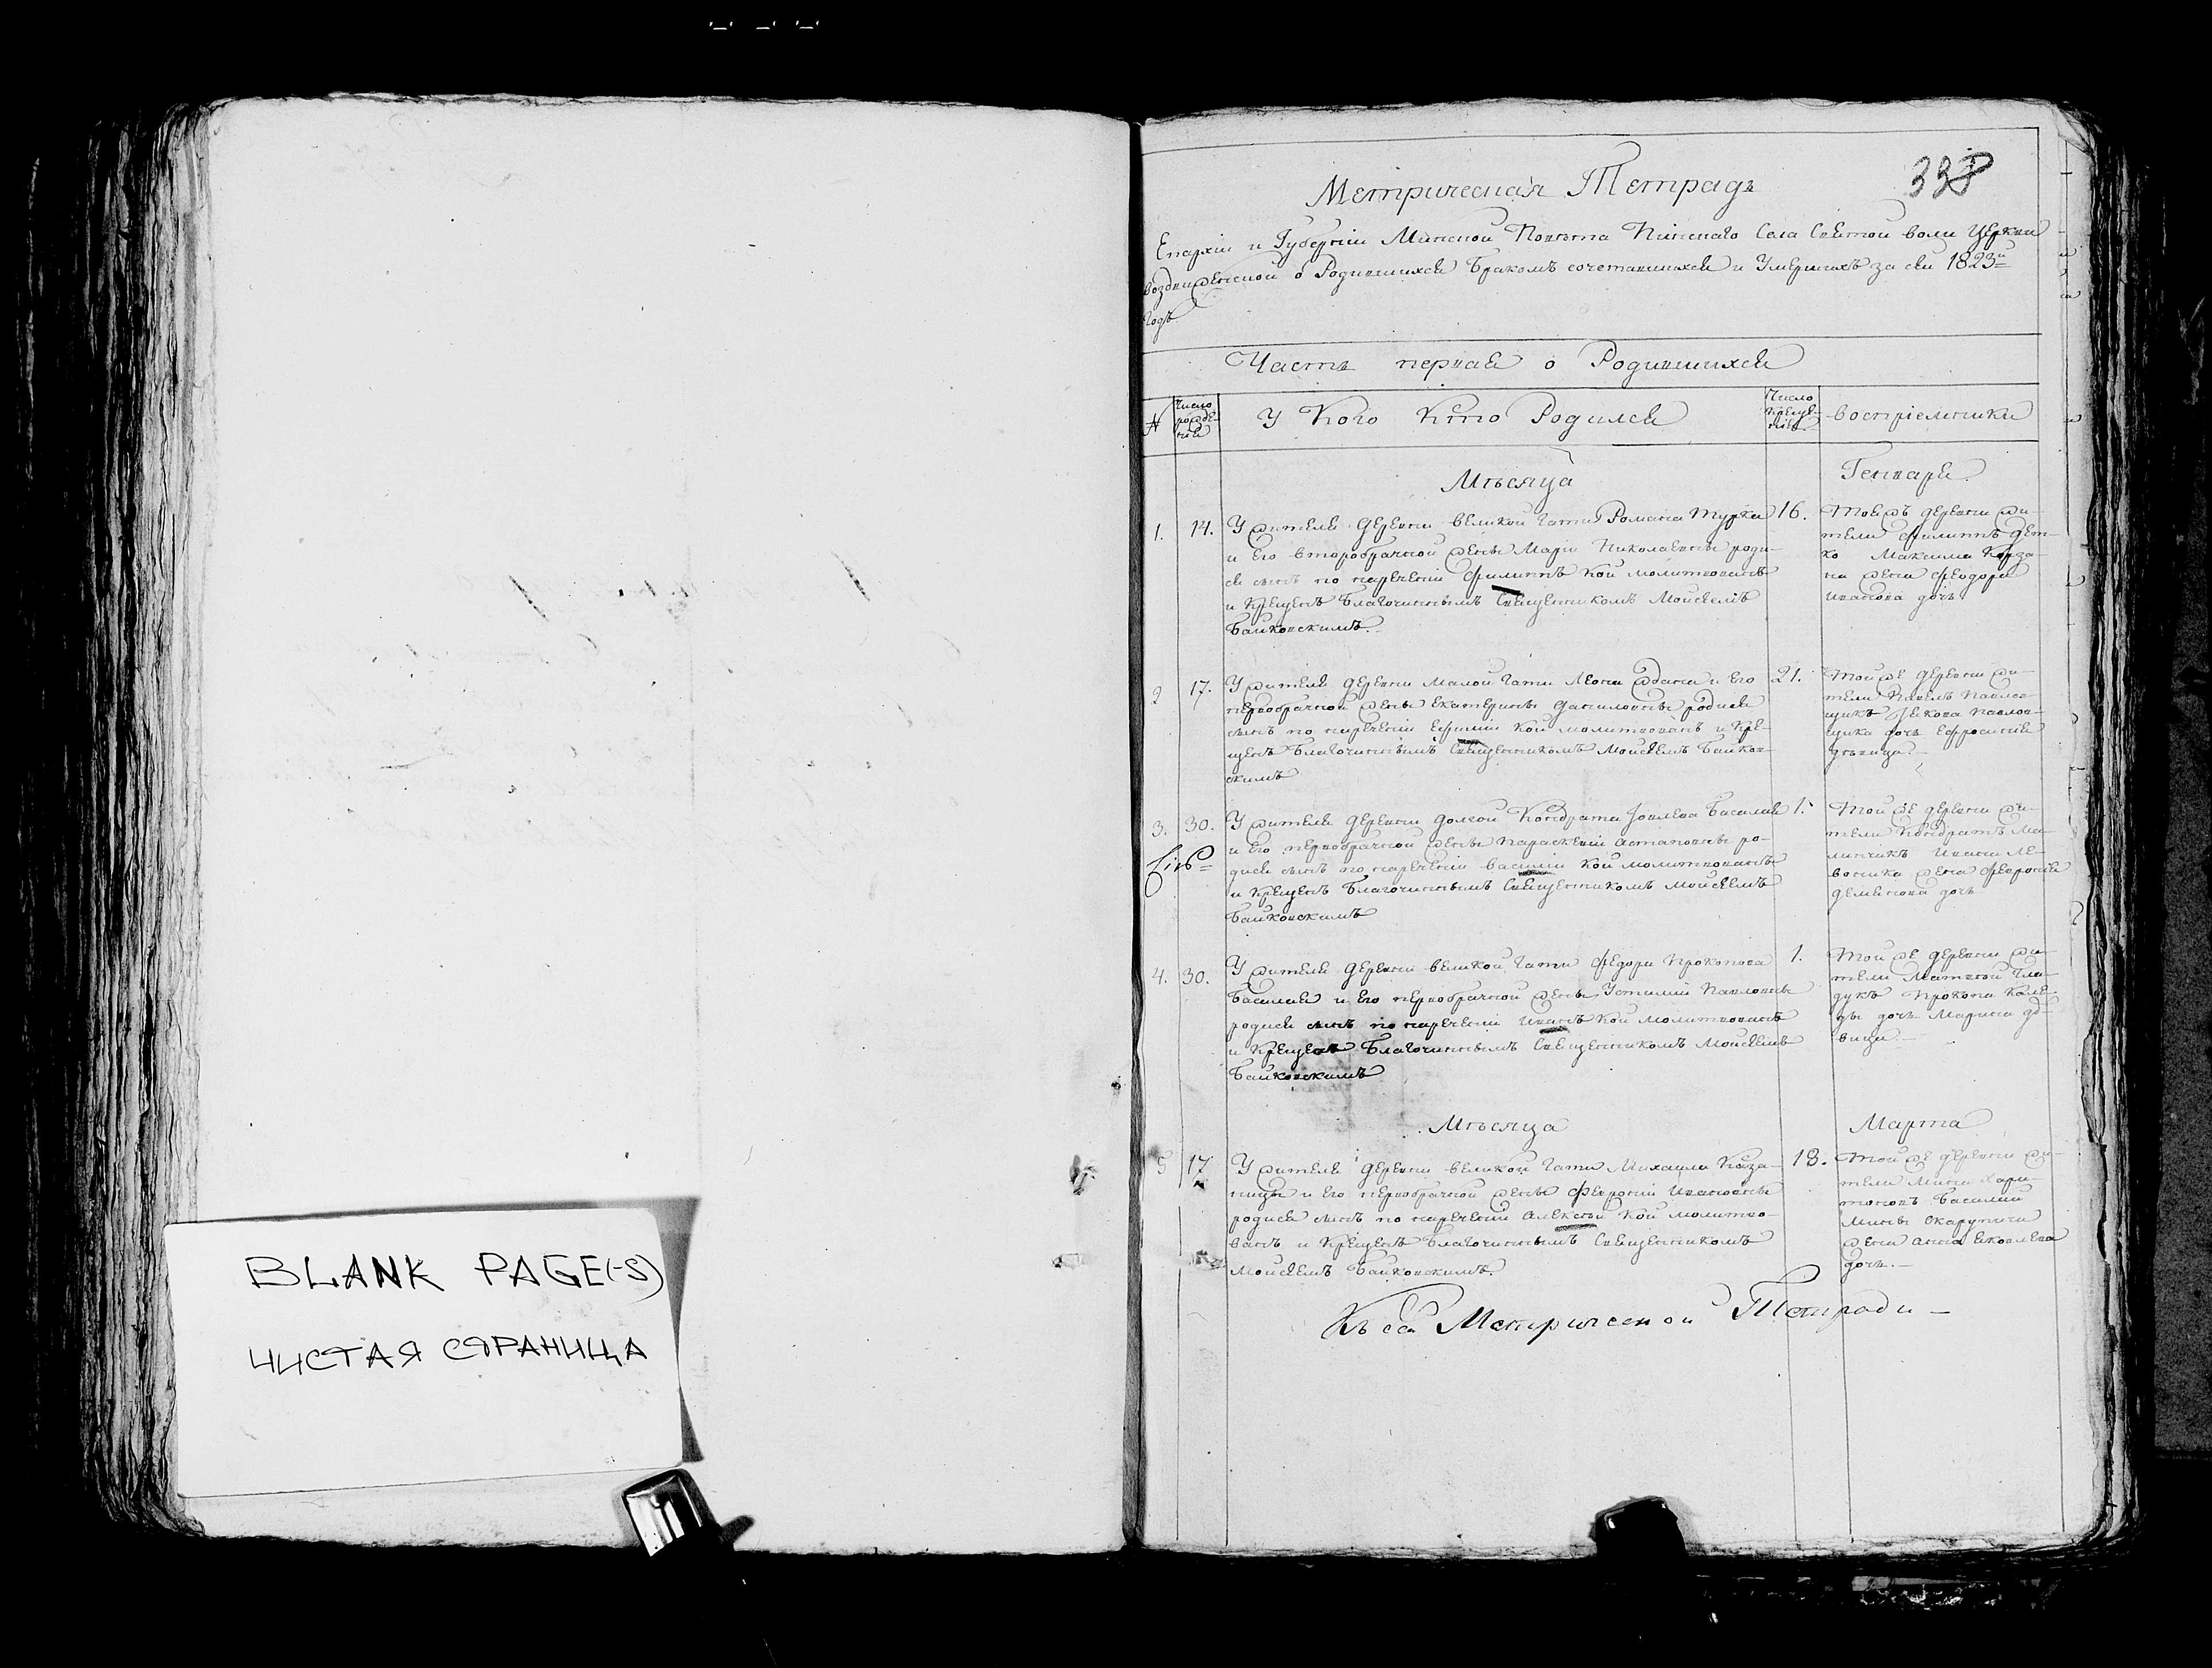 BLANK PAGE(-S)
ЧИСТАЯ СТРАНИЦА
Метрическая Тетрадь
Епархіи и Губерніи Минской Повѣта Пинскаго Села Святой воли Церкви
воздвиженской о Родившихся Бракомъ сочетавшихся и Умершихъ за сей 1823й
Годъ
Часть первая о Родившихся
№
Число рожде-
нія
У Кого Кто Родился
Число
Креще-
нія
воспріемники
Мѣсяца Генваря
1. 14.
У жителя деревни великой Гати Романа Турка
и его второбрачной жены Маріи Николаевны роди-
ся сынъ по нареченіи Филиппъ кой молитвованъ
и Крещенъ Благочиннымъ Священникомъ Мойсеемъ
Байковскимъ.
16.
Тоежъ деревни жи-
тели Филиппъ
ко Максима
на жена Феодора
иванова дочь
2 17.
У жителя деревни Малой Гати Леона и его
первобрачной жены Екатерины Даниловны родися
сынъ по нареченіи Ефимій кой молитвованъ и Кре-
щенъ Благочиннымъ Священникомъ Мойсеемъ Байков-
скимъ
21.
Той же деревни жи-
тели Павелъ Павлов-
щикъ Якова Павлов-
щика дочь Ефросинія
дѣвица.
3. 30.
У жителя деревни долгой Кондрата Іовлева Басалая
и его первобрачной жены Параскевіи Астаповны ро-
дися сынъ по нареченіи василій кой молитвованъ
и Крещенъ Благочиннымъ Священникомъ Мойсеемъ
Байковскимъ
1.
Той же деревни жи-
тели Кондратъ Ма-
линчикъ Ивана Ле-
воника жена Феронія
деменова дочь
4. 30.
У жителя деревни великой Гати Федора Прокопова
Басалая и его первобрачной жены Устиміи Павловны
родися сынъ по нареченіи Иванъ кой молитвованъ
и Крещенъ Благочиннымъ Священникомъ Мойсеемъ
Байковскимъ
1.
Той же деревни жи-
тели Матвей Гла-
дукъ Прокопа Коле-
ды дочь Марина дѣ-
вица.
Мѣсяца Марта
5 17
У жителя деревни великой Гати Михаила Каза-
ницы и его первобрачной жены Февроніи Ивановны
родися сынъ по нареченіи Алексѣй кой молитво-
ванъ и Крещенъ Благочиннымъ Священникомъ
Мойсеемъ Байковскимъ.
18.
Той же деревни жи-
тели Мина Хари-
тоновъ Басалай
Мины Скарупича
жена Анна Яковлева
дочь.
Къ сей Метрической Тетради